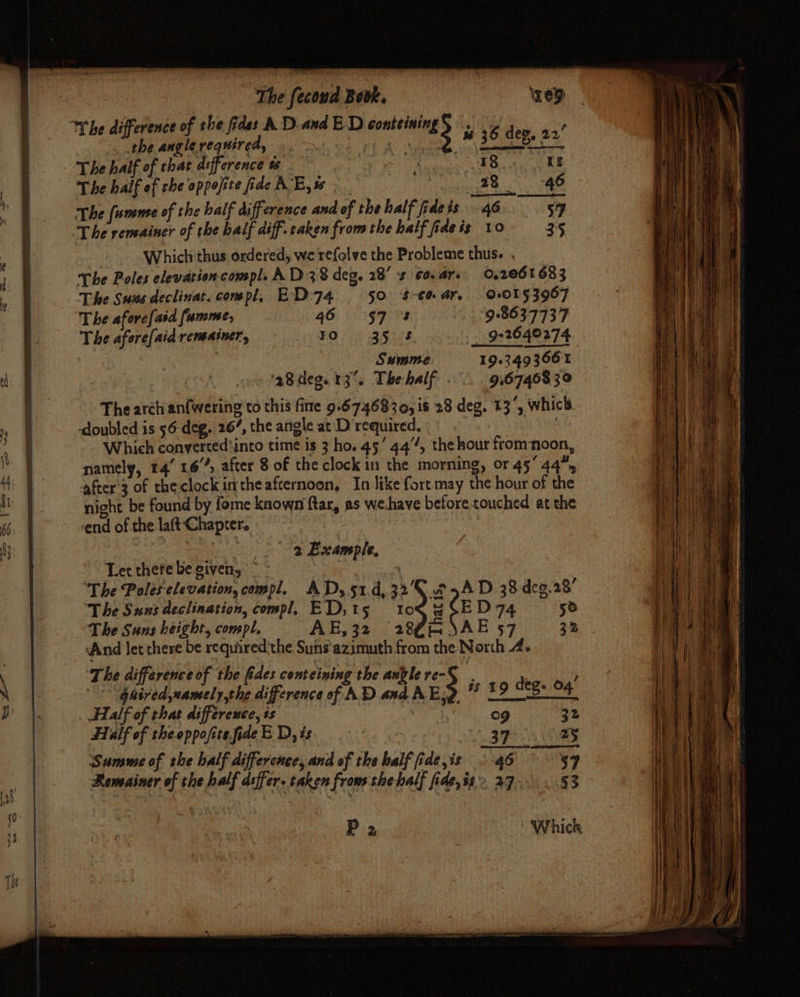 The ſecond Book. 109
The difference of the ſides A D and E D conteining } is 36 deg. 22′
the angle required,
The half of that difference is 18 11
The half of the oppoſite ſide A E, is 28 46
The ſumme of the half difference and of the half ſide is 46 57
The remainer of the half diff. taken from the half ſide is 10 35
Which thus ordered, we reſolve the Probleme thus.
The Poles elevation compl. A D 38 deg. 28′ s co. ar. 0.2061683
The Suns declinat. compl. E D 74 50 s co. ar. 0.0153967
The aforeſaid ſumme, 46 57 s 9.8637737
The aforeſaid remainer, 10 35 s 9.2640274
Summe 19.3493661
28 deg. 13′. The half 9.6746830
The arch anſwering to this ſine 9.6746830, is 28 deg. 13′, which
doubled is 56 deg. 26′, the angle at D required.
Which converted into time is 3 ho. 45′ 44″, the hour from noon,
namely, 14′ 16″, after 8 of the clock in the morning, or 45′ 44″,
after 3 of the clock in the afternoon. In like ſort may the hour of the
night be found by ſome known ſtar, as we have before touched at the
end of the laſt Chapter.
2 Example.
Let there be given,
The Poles elevation, compl. A D, 51 d, 32′ } That is { A D 38 deg. 28′
The Suns declination, compl. E D, 15 10 } { E D 74 50
The Suns height, compl. A E, 32 28 } { A E 57 32
And let there be required the Suns azimuth from the North A.
The difference of the ſides conteining the angle re- } is 19 deg. 04′
quired, namely, the difference of A D and A E,
Half of that difference, is 09 32
Half of the oppoſite ſide E D, is 37 25
Summe of the half difference, and of the half ſide, is 46 57
Remainer of the half differ. taken from the half ſide, is 27 53
P 2 Which